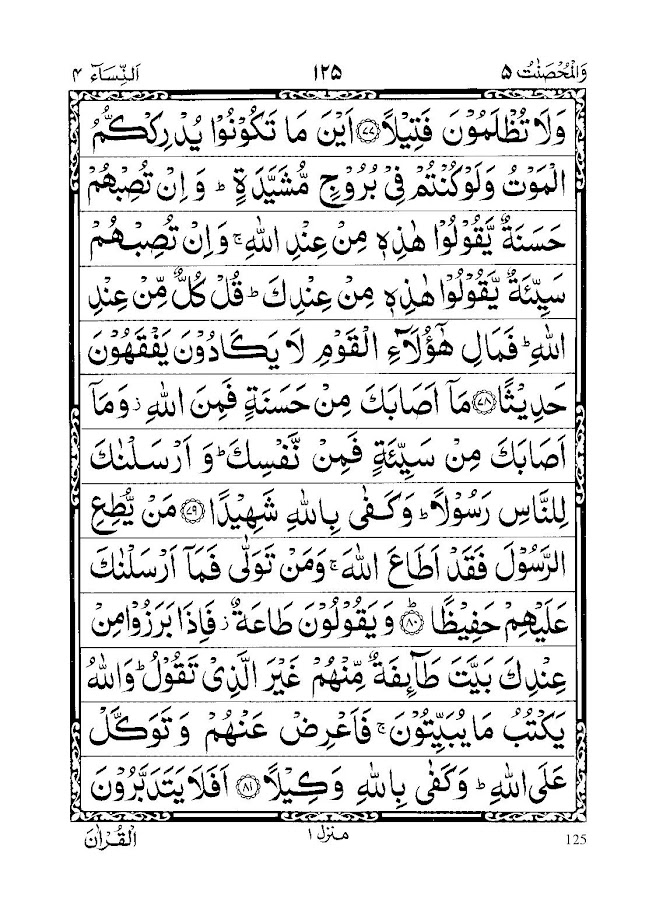 وَالْمُحْصَنٰتُ ۵ ۱۲۵ اَلنِّسَآء ۴
وَلَا تُظْلَمُوْنَ فَتِيْلًا ﴿۷۷﴾ اَيْنَ مَا تَكُوْنُوْا يُدْرِكْكُّمُ
الْمَوْتُ وَلَوْ كُنْتُمْ فِيْ بُرُوْجٍ مُّشَيَّدَةٍ ؕ وَ اِنْ تُصِبْهُمْ
حَسَنَةٌ يَّقُوْلُوْا هٰذِهٖ مِنْ عِنْدِ اللّٰهِ ۚ وَاِنْ تُصِبْهُمْ
سَيِّئَةٌ يَّقُوْلُوْا هٰذِهٖ مِنْ عِنْدِكَ ؕ قُلْ كُلٌّ مِّنْ عِنْدِ
اللّٰهِ ؕ فَمَالِ هٰٓؤُلَآءِ الْقَوْمِ لَا يَكَادُوْنَ يَفْقَهُوْنَ
حَدِيْثًا ﴿۷۸﴾ مَاۤ اَصَابَكَ مِنْ حَسَنَةٍ فَمِنَ اللّٰهِ ۫ وَمَاۤ
اَصَابَكَ مِنْ سَيِّئَةٍ فَمِنْ نَّفْسِكَ ؕ وَ اَرْسَلْنٰكَ
لِلنَّاسِ رَسُوْلًا ؕ وَكَفٰى بِاللّٰهِ شَهِيْدًا ﴿۷۹﴾ مَنْ يُّطِعِ
الرَّسُوْلَ فَقَدْ اَطَاعَ اللّٰهَ ۚ وَمَنْ تَوَلّٰى فَمَاۤ اَرْسَلْنٰكَ
عَلَيْهِمْ حَفِيْظًا ﴿۸۰﴾ؕ وَ يَقُوْلُوْنَ طَاعَةٌ ۫ فَاِذَا بَرَزُوْا مِنْ
عِنْدِكَ بَيَّتَ طَآئِفَةٌ مِّنْهُمْ غَيْرَ الَّذِيْ تَقُوْلُ ؕ وَاللّٰهُ
يَكْتُبُ مَا يُبَيِّتُوْنَ ۚ فَاَعْرِضْ عَنْهُمْ وَ تَوَكَّلْ
عَلَى اللّٰهِ ؕ وَكَفٰى بِاللّٰهِ وَكِيْلًا ﴿۸۱﴾ اَفَلَا يَتَدَبَّرُوْنَ
الْقُرْاٰنَ
منزل ۱
125